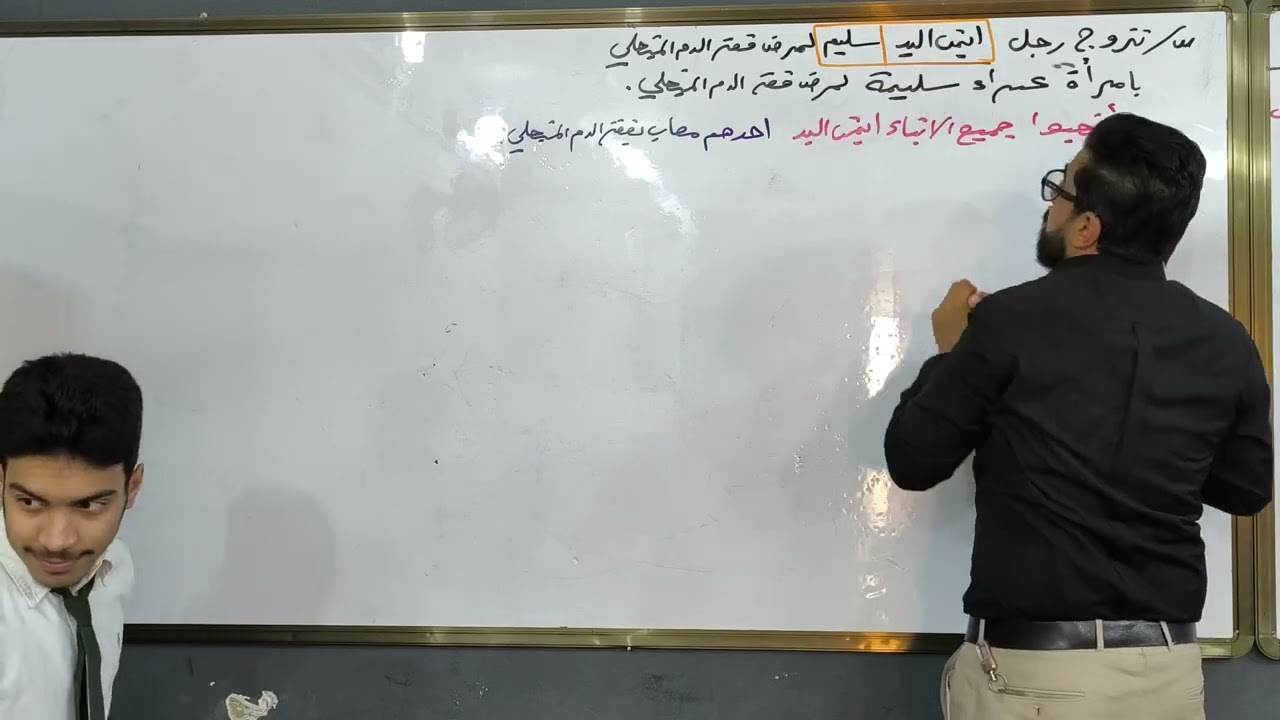 س/ تتزوج رجل ايمن اليد سليم لمرض فقر الدم المنجلي
بامرأة عسراء سليمة لمرض فقر الدم المنجلي .
جميع الابناء ايمن اليد احدهم مصاب بفقر الدم المنجلي .